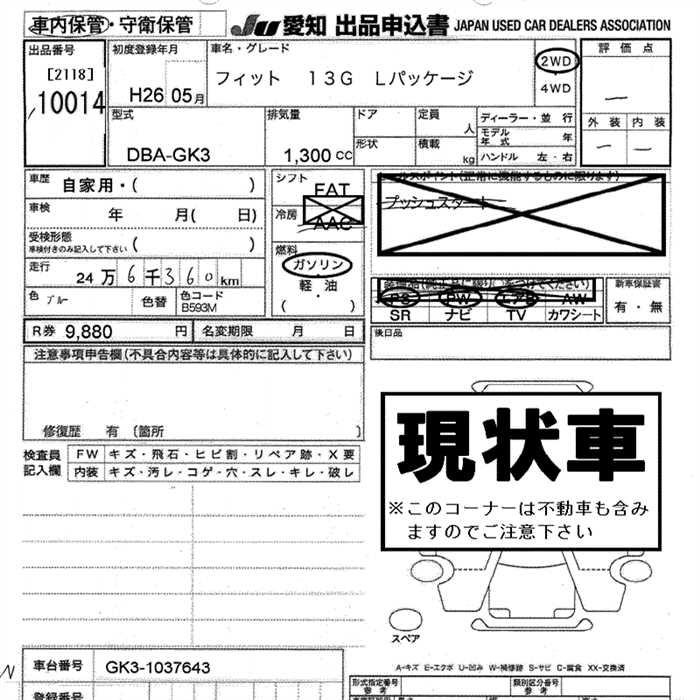 車内保管・守衛保管
JU 愛知 出品申込書 JAPAN USED CAR DEALERS ASSOCIATION
出品番号
[2118]
10014
初度登録年月
H26 05月
車名・グレード
フィット 13G Lパッケージ
2WD
4WD
評価点
外装 内装
型式
DBA-GK3
排気量
1,300 cc
ドア
形状
定員
人
積載
kg
ディーラー・並行
モデル年式 年
ハンドル 左・右
車歴 自家用・( )
車検 年 月( 日)
受検形態
車検付きのみ記入して下さい ( )
走行
24万6千360km
色 ブルー
色替
色コード
B593M
シフト
FAT
冷房
AAC
燃料
ガソリン
軽・油
( )
セールスポイント(正常に機能するものに限ります)
プッシュスタート
装備品(純正品に限り○をつけてください)
PS PW エアB AW
SR ナビ TV カワシート
新車保証書
有・無
R券 9,880 円
名変期限 月 日
後日品
注意事項申告欄(不具合内容等は具体的に記入して下さい)
修復歴 有 〔箇所 〕
検査員
記入欄
FW キズ・飛石・ヒビ割・リペア跡・X要
内装 キズ・汚レ・コゲ・穴・スレ・キレ・破レ
現状車
※このコーナーは不動車も含み
ますのでご注意下さい
スペア
A-キズ E-エクボ U-凹み W-補修跡 S-サビ C-腐食 XX-交換済
車台番号 GK3-1037643
登録番号
形式指定番号
参考
類別区分番号
参考